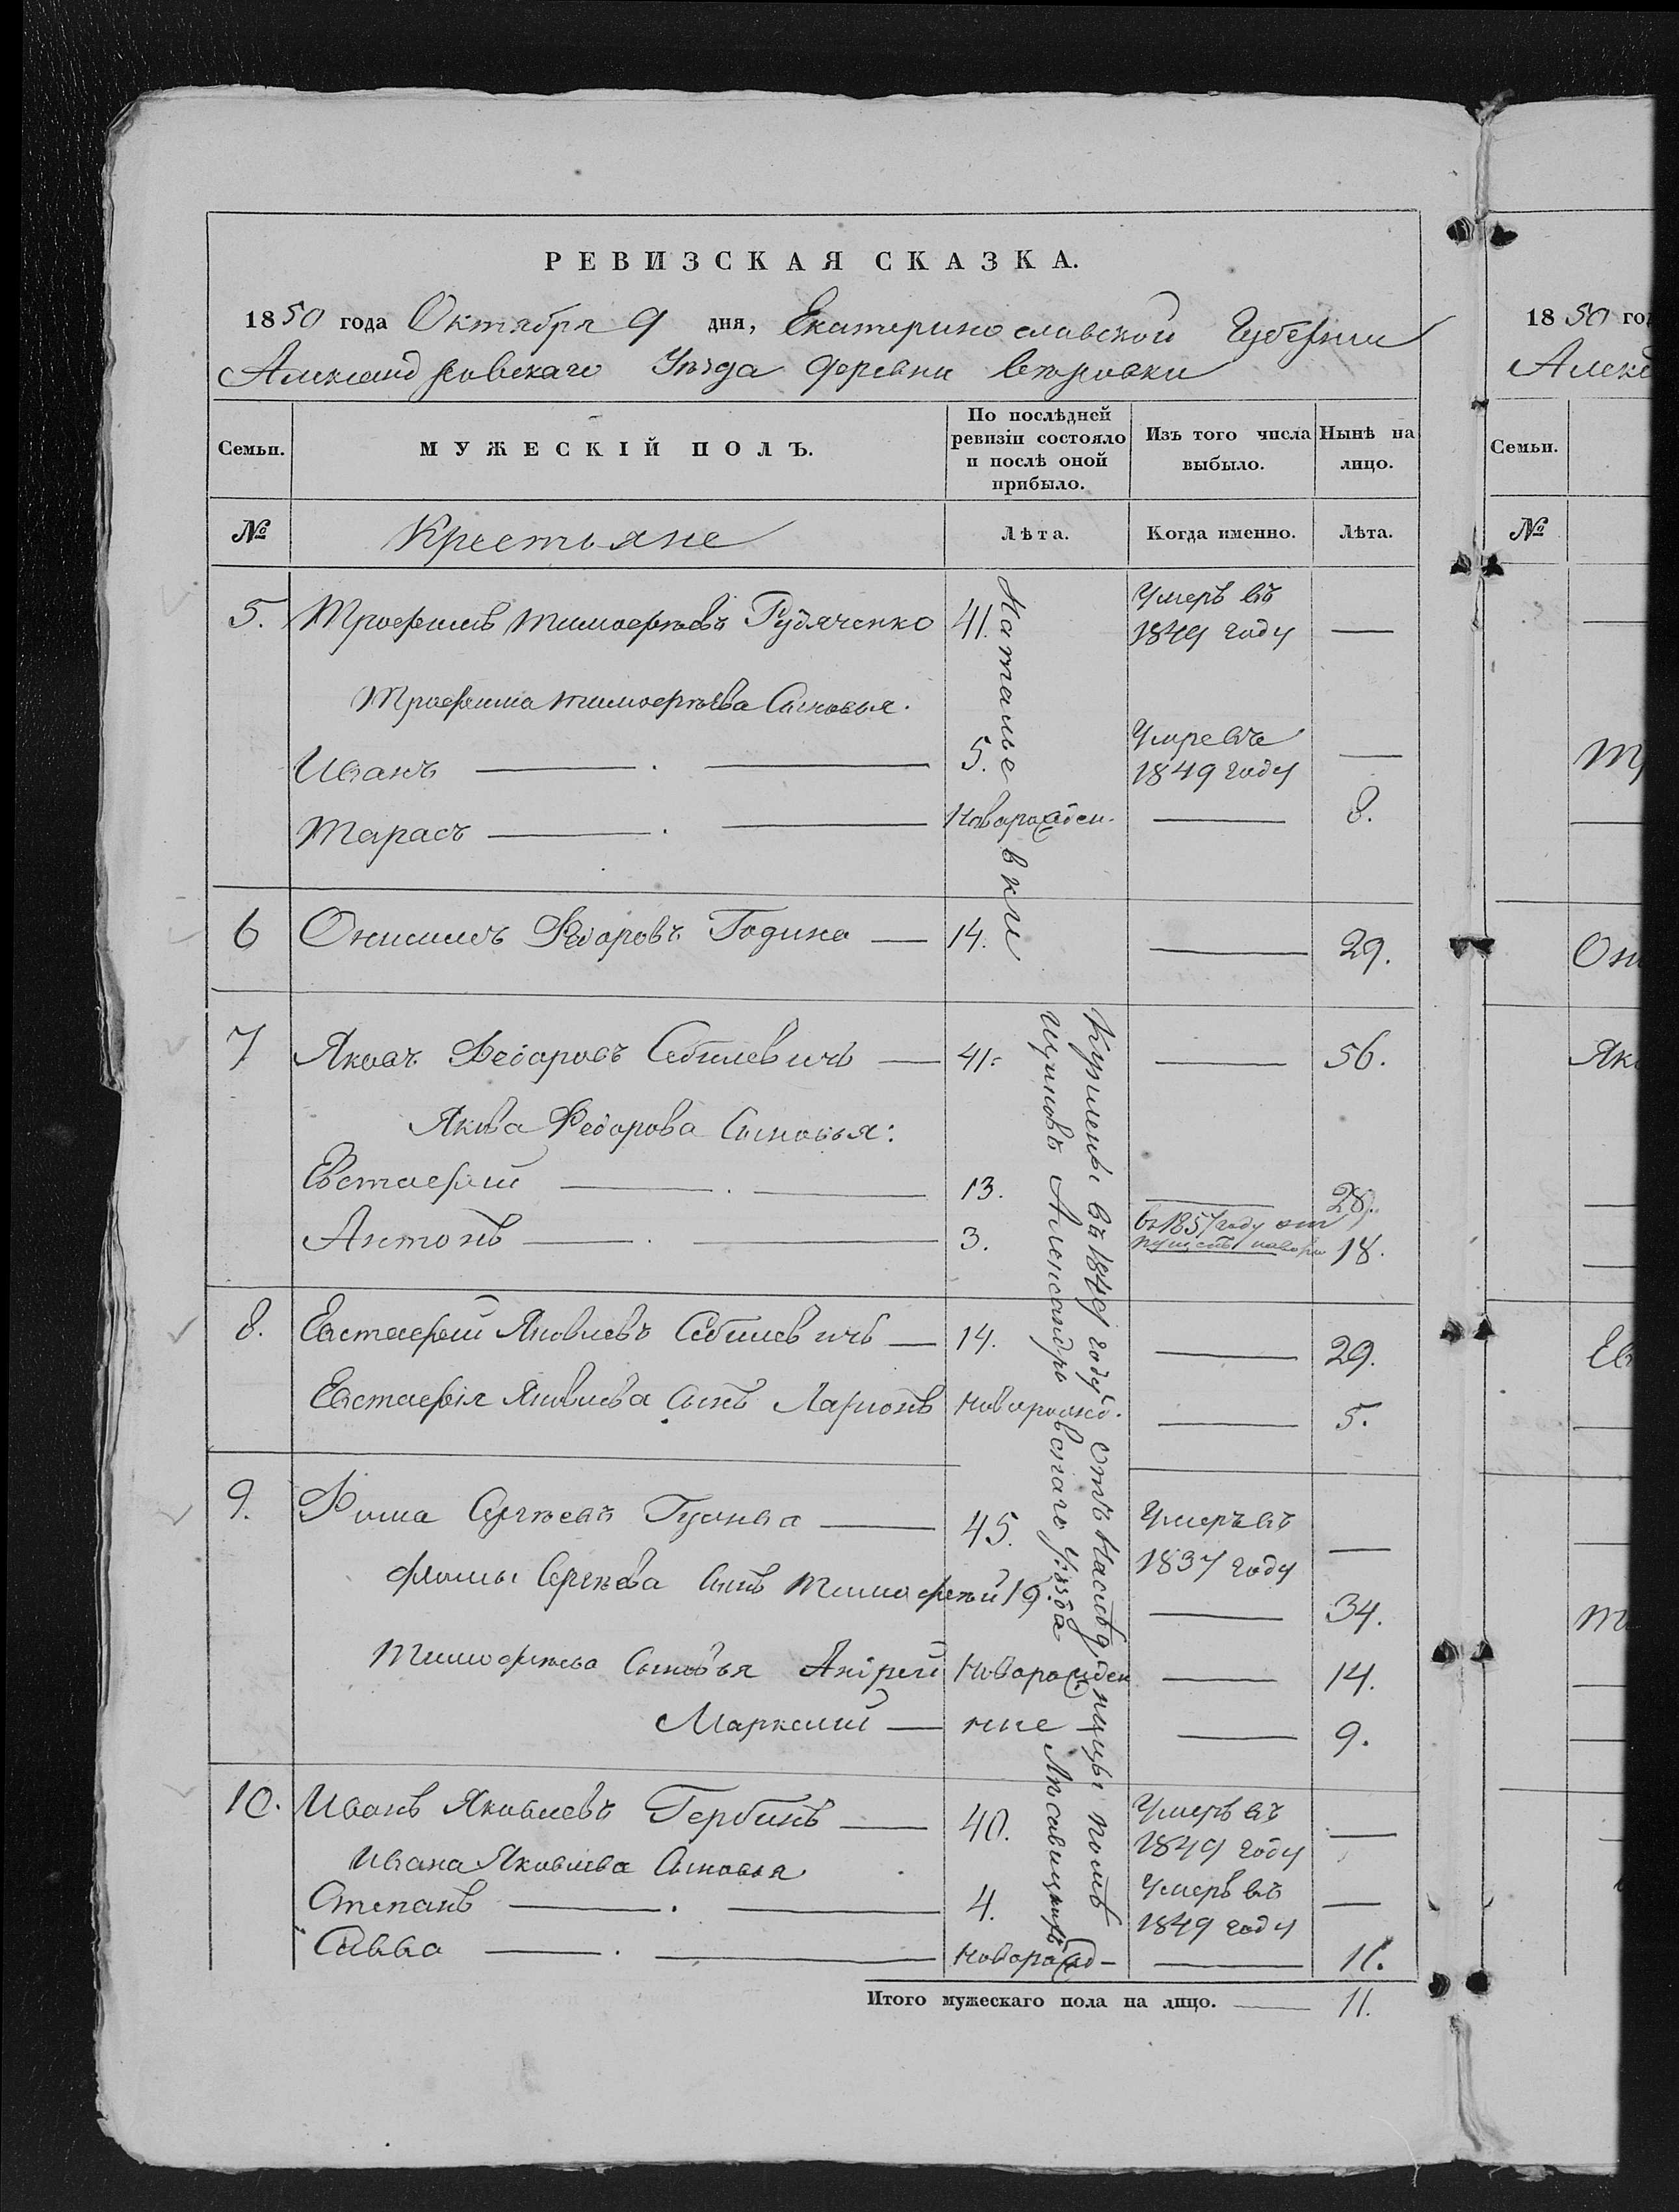 РЕВИЗСКАЯ СКАЗКА.
1850 года Октября 9 дня, Екатеринославской Губернии
Александровскаго Уѣзда деревни Петровки
Семьи.
МУЖЕСКІЙ ПОЛЪ.
По послѣдней ревизіи состояло и послѣ оной прибыло.
Изъ того числа выбыло.
Нынѣ на лицо.
№
Крестьяне
Лѣта.
Когда именно.
Лѣта.
5. Трофимъ Тимофѣевъ Рудяченко 41. Умеръ въ 1849 году —
Трофима Тимофѣева Сыновья.
Иванъ — . — 5. Умре въ 1849 году —
Тарасъ — . — Новорожден. — 8.
6 Онисимъ Федоровъ Година — 14. — 29.
7 Яковъ Федоровъ — 41. — 56.
Якова Федорова Сыновья:
Евстафій — . — 13. — 28.
Антонъ — . — 3. въ 1857 году 18.
8. Евстафій Яковлевъ — 14. — 29.
Евстафія Яковлева Сынъ Ларіонъ Новорожд. — 5.
9. Фома Сергѣевъ — 45. Умеръ въ 1837 году —
Фомы Сергѣева Сынъ Тимофѣй 19. — 34.
Тимофѣева Сыновья Андрей Новорожден — 14.
— ные — 9.
10. Иванъ Яковлевъ Гербинъ — 40. Умеръ въ 1849 году —
Ивана Яковлева Сыновья
Степанъ — . — 4. Умеръ въ 1849 году —
Савва — . — Новорожд — 11.
Итого мужескаго пола на лицо. — 11.
Наталье вки
Куплены въ 1849 году отъ Наслѣдницы помѣ
щиковъ Александровскаго Уѣзда
1850 го
Алекс
Семьи.
№
Они
Яко